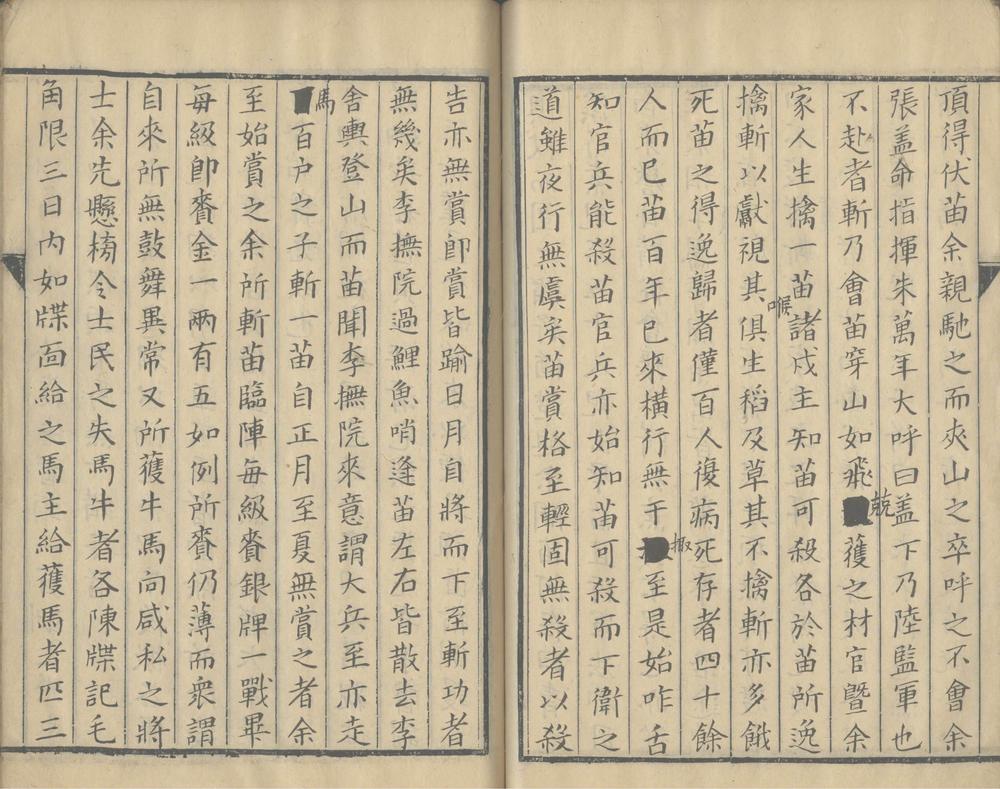 頂得伏苗余親馳之而夾山之卒呼之不會余
張盖命指揮朱萬年大呼曰盖下乃陸監軍也
不赴者斬乃會苗穿山如飛兢獲之材官曁余
家人生擒一苗諸戍主知苗可殺各於苗所逸
擒斬以獻視其喉俱生稻及草其不擒斬亦多餓
死苗之得逸歸者僅百人復病死存者四十餘
人而已苗百年已來橫行無于掫至是始咋舌
知官兵能殺苗官兵亦始知苗可殺而下衛之
道雖夜行無虞矣苗賞格至輕固無殺者以殺
告亦無賞即賞皆踰日月自將而下至斬功者
無幾矣李撫院過鯉魚哨逢苗左右皆散去李
舍輿登山而苗聞李撫院來意謂大兵至亦走
馬百户之子斬一苗自正月至夏無賞之者余
至始賞之余所斬苗臨陣每級賚銀牌一戰畢
每級即賚金一兩有五如例所賚仍薄而衆謂
自來所無鼓舞異常又所獲牛馬向咸私之將
士余先懸榜令士民之失馬牛者各陳牒記毛
角限三日內如牒面給之馬主給獲馬者匹三